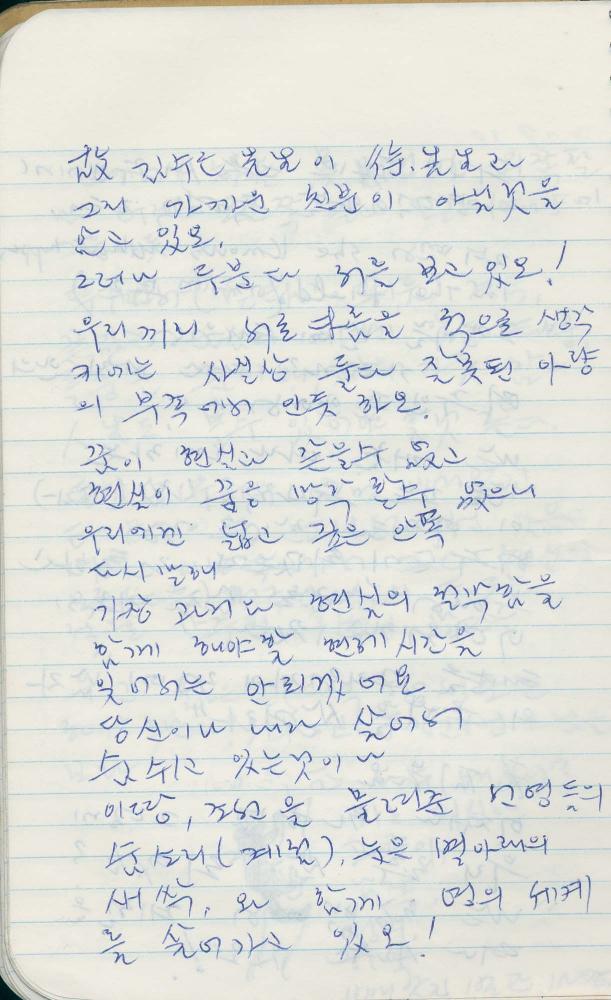 故 김수근 선생이 徐.선생과
그리 가까운 친분이 아닌것을
알고 있오.
그러나 두분다 허를 보고 있오!
우리끼리 서로 다름을 적으로 생각
키에는 사실상 둘다 잘못된 아량
의 부족에서 인듯 하오.
꿈이 현실과 같을수 없고
현실이 꿈을 망각 할수 없으니
우리에겐 넓고 깊은 안목
다시말해
가장 과거와 현실의 절박함을
함께 해야할 현재 시간을
잊어서는 안되겠어요
당신이나 내가 살아서
숨쉬고 있는것이나
이땅, 조선을 물려준 만영들의
숨소리(계절), 높은 별아래의
새싹, 와 함께 영의 세계
를 살아가고 있오!